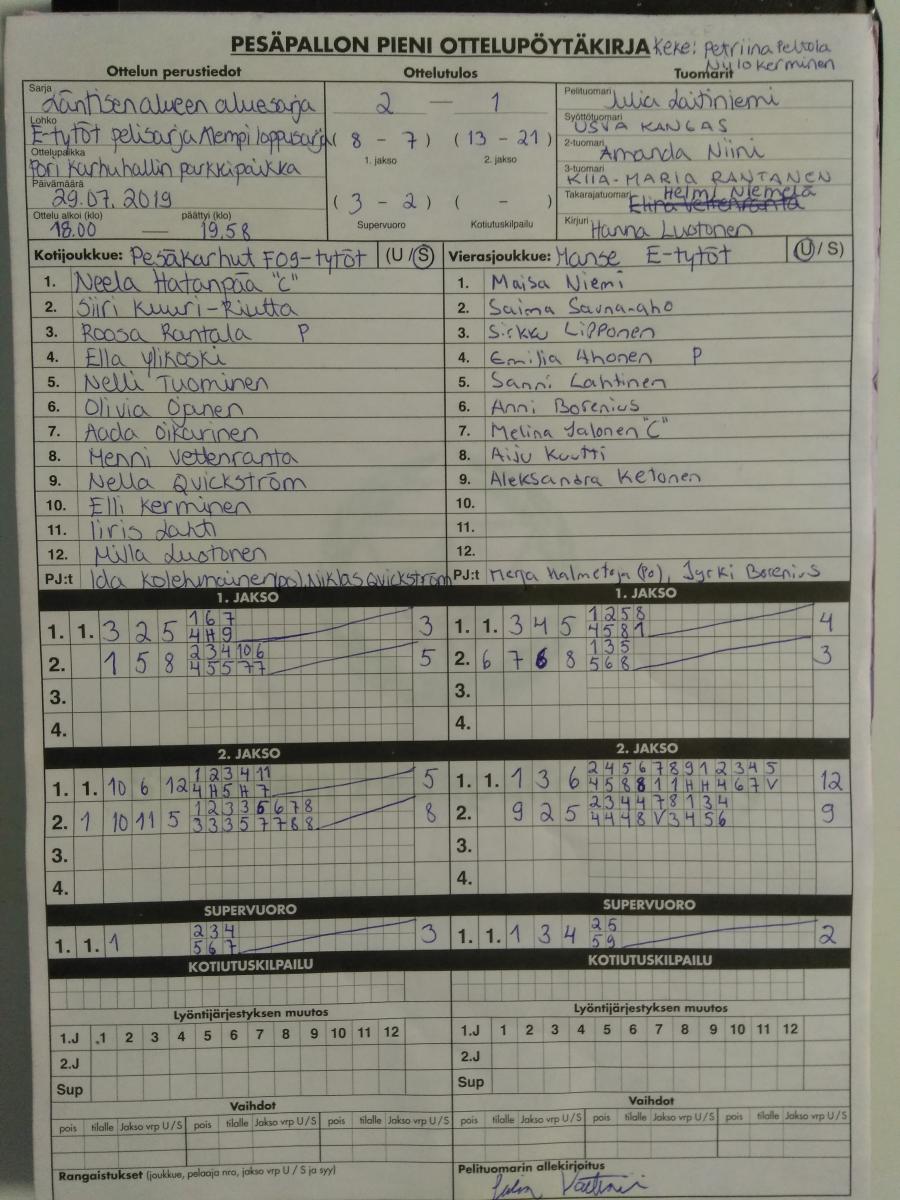 PESÄPALLON PIENI OTTELUPÖYTÄKIRJA Keke: Petriina Peltola
Niilo Kerminen
Ottelun perustiedot Ottelutulos Tuomarit
Sarja
Läntisen alueen aluesarja
2 — 1
Pelituomari Julia Laitiniemi
Lohko
E-tytöt pelisarja Alempi loppusarja
( 8 – 7 ) ( 13 – 21 )
1. jakso 2. jakso
Syöttötuomari
USVA KANGAS
Ottelupaikka
Pori Karhuhallin parkkipaikka
2-tuomari
Amanda Niini
Päivämäärä
29.07.2019
( 3 – 2 ) ( – )
Supervuoro Kotiutuskilpailu
3-tuomari
KIIA-MARIA RANTANEN
Takarajatuomari Helmi Niemelä
Elina Vettenranta
Ottelu alkoi (klo) päättyi (klo)
18.00 19.58
Kirjuri Hanna Luotonen
Kotijoukkue: Pesäkarhut F09-tytöt (U / S)
1. Neela Hatanpää "C"
2. Siiri Kuuri-Riutta
3. Roosa Rantala P
4. Ella Ylikoski
5. Nelli Tuominen
6. Olivia Ojanen
7. Aada Oikarinen
8. Menni Vettenranta
9. Nella Quickström
10. Elli Kerminen
11. Iiris Lahti
12. Milla Luotonen
PJ:t Ida Kolehmainen (po), Niklas Quickström
Vierasjoukkue: Manse E-tytöt (U / S)
1. Maisa Niemi
2. Saima Savna-aho
3. Sirkku Lipponen
4. Emilia Ahonen P
5. Sanni Lahtinen
6. Anni Borenius
7. Melina Jalonen "C"
8. Aiju Kuutti
9. Aleksandra Ketonen
10.
11.
12.
PJ:t Merja Halmetoja (Po), Jyrki Borenius
1. JAKSO
1. 1. 3 2 5 1 6 7 3
4 H 9
2. 1 5 8 2 3 4 10 6 5
4 5 5 7 7
3.
4.
1. JAKSO
1. 1. 3 4 5 1 2 5 8 4
4 5 8 1
2. 6 7 6 8 1 3 5 3
5 6 8
3.
4.
2. JAKSO
1. 1. 10 6 12 1 2 3 4 11 5
4 H 5 H 7
2. 1 10 11 5 1 2 3 3 5 6 7 8 8
3 3 3 5 7 7 8 8
3.
4.
2. JAKSO
1. 1. 1 3 6 2 4 5 6 7 8 9 1 2 3 4 5 12
4 5 8 8 1 1 H H 4 6 7 V
2. 9 2 5 2 3 4 4 7 8 1 3 4 9
4 4 4 8 V 3 4 5 6
3.
4.
SUPERVUORO
1. 1. 1 2 3 4 3
5 6 7
SUPERVUORO
1. 1. 1 3 4 2 5 2
5 9
KOTIUTUSKILPAILU KOTIUTUSKILPAILU
Lyöntijärjestyksen muutos Lyöntijärjestyksen muutos
1.J 1 2 3 4 5 6 7 8 9 10 11 12 1.J 1 2 3 4 5 6 7 8 9 10 11 12
2.J 2.J
Sup Sup
Vaihdot Vaihdot
pois tilalle Jakso vrp U / S pois tilalle Jakso vrp U / S pois tilalle Jakso vrp U / S pois tilalle Jakso vrp U / S pois tilalle Jakso vrp U / S pois tilalle Jakso vrp U / S
Rangaistukset (joukkue, pelaaja nro, jakso vrp U / S ja syy) Pelituomarin allekirjoitus